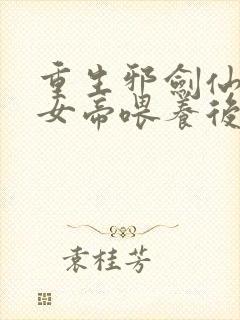 重生邪劍仙
女帝喂養後
袁桂芳